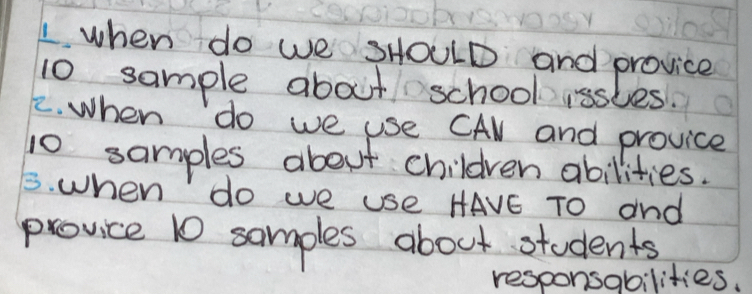 1. when do we SHOULD and provice
10 sample about school issues.
2. when do we use CAN and provice
10 samples about children abilities.
3. when do we use HAVE TO and
provice 10 samples about students
responsabilities.